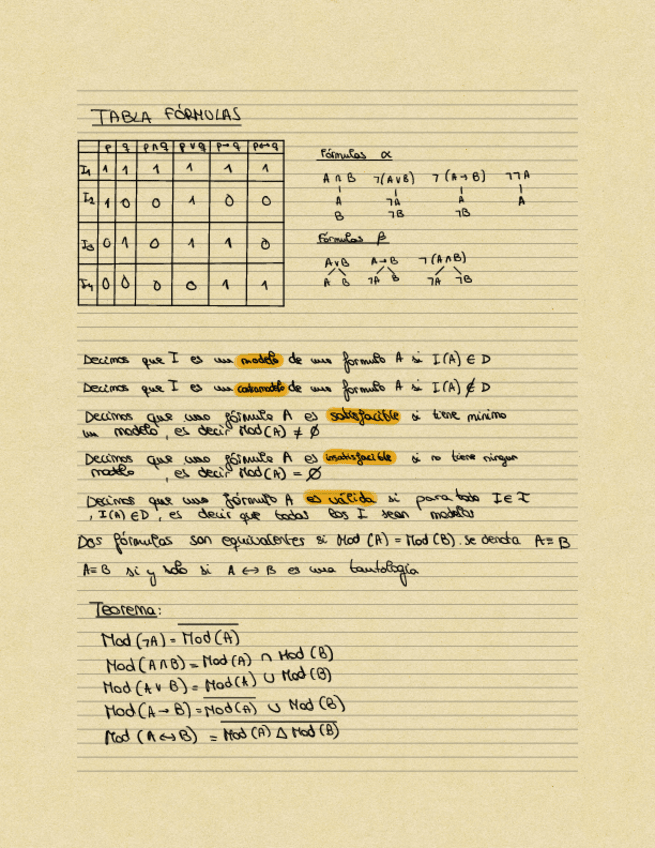 TABLA FÓRMULAS
p q p∧q p∨q p→q p↔q
I₁ 1 1 1 1 1 1
I₂ 1 0 0 1 0 0
I₃ 0 1 0 1 1 0
I₄ 0 0 0 0 1 1
Fórmulas α
A∧B ¬(A∨B) ¬(A→B) ¬¬A
A ¬A A A
B ¬B ¬B
Fórmulas β
A∨B A→B ¬(A∧B)
A B ¬A B ¬A ¬B
Decimos que I es un modelo de una formula A si I(A) ∈ D
Decimos que I es un contramodelo de una formula A si I(A) ∉ D
Decimos que una fórmula A es satisfacible si tiene mínimo
un modelo, es decir Mod(A) ≠ ∅
Decimos que una fórmula A es insatisfacible si no tiene ningun
modelo, es decir Mod(A) = ∅
Decimos que una fórmula A es válida si para todo I∈I
, I(A)∈D, es decir que todas los I sean modelos
Dos fórmulas son equivalentes si Mod(A) = Mod(B). se denota A≡B
A≡B si y solo si A↔B es una tautología
Teorema:
Mod(¬A) = \overline{Mod(A)}
Mod(A∧B) = Mod(A) ∩ Mod(B)
Mod(A∨B) = Mod(A) ∪ Mod(B)
Mod(A→B) = \overline{Mod(A)} ∪ Mod(B)
Mod(A↔B) = \overline{Mod(A) Δ Mod(B)}